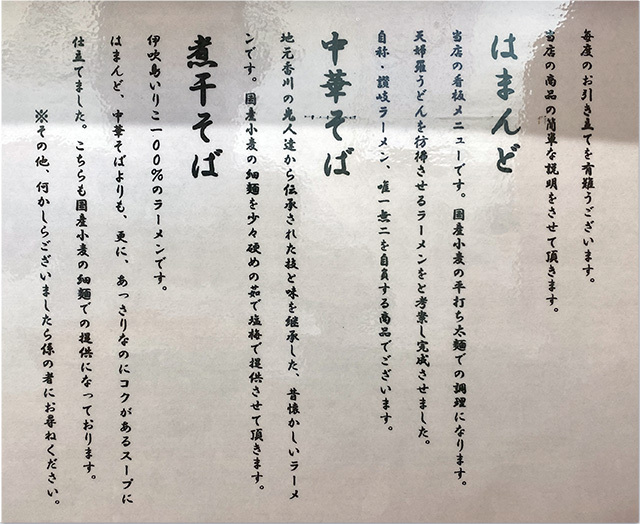 毎度のお引き立てを有難うございます。
当店の商品の簡単な説明をさせて頂きます。
はまんど
当店の看板メニューです。国産小麦の平打ち太麺での調理になります。
天婦羅うどんを彷彿させるラーメンをと考案し完成させました。
自称・讃岐ラーメン、唯一無二を自負する商品でございます。
中華そば
地元香川の鬼人達から伝承された技と味を継承した、昔懐かしいラーメ
ンです。国産小麦の細麺を少々硬めの茹で塩梅で提供させて頂きます。
煮干そば
伊吹島いりこ一〇〇%のラーメンです。
はまんど、中華そばよりも、更に、あっさりなのにコクがあるスープに
仕立てました。こちらも国産小麦の細麺での提供になっております。
※その他、何かしらございましたら係の者にお尋ねください。